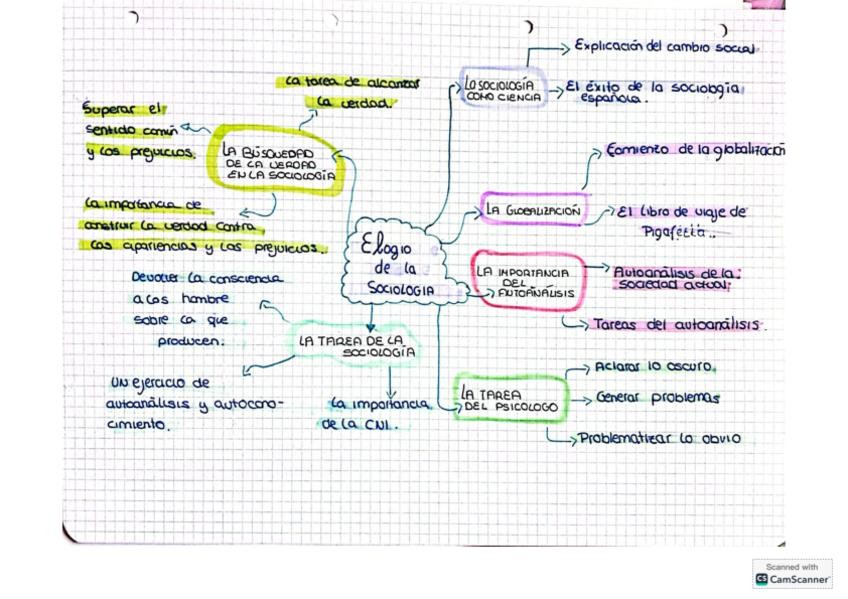 Explicación del cambio social.
LA SOCIOLOGÍA
COMO CIENCIA
El éxito de la sociología
española.
La tarea de alcanzar
la verdad.
Superar el
sentido común
y los prejuicios.
LA BÚSQUEDAD
DE LA VERDAD
EN LA SOCIOLOGÍA
La importancia de
construir la verdad contra
las apariencias y los prejuicios.
Comienzo de la globalización
LA GLOBALIZACIÓN
El libro de viaje de
Pigafetta..
Elogio
de la
SOCIOLOGIA
LA IMPORTANCIA
DEL
AUTOANÁLISIS
Autoanálisis de la
sociedad actual.
Tareas del autoanálisis.
Devolver la consciencia
a los hombre
sobre la que
producen.
LA TAREA DE LA
SOCIOLOGÍA
Un ejercicio de
autoanálisis y autocono-
cimiento.
La importancia
de la CNI.
LA TAREA
DEL PSICOLOGO
Aclarar lo oscuro.
Generar problemas
Problematizar lo obvio
Scanned with
CS CamScanner